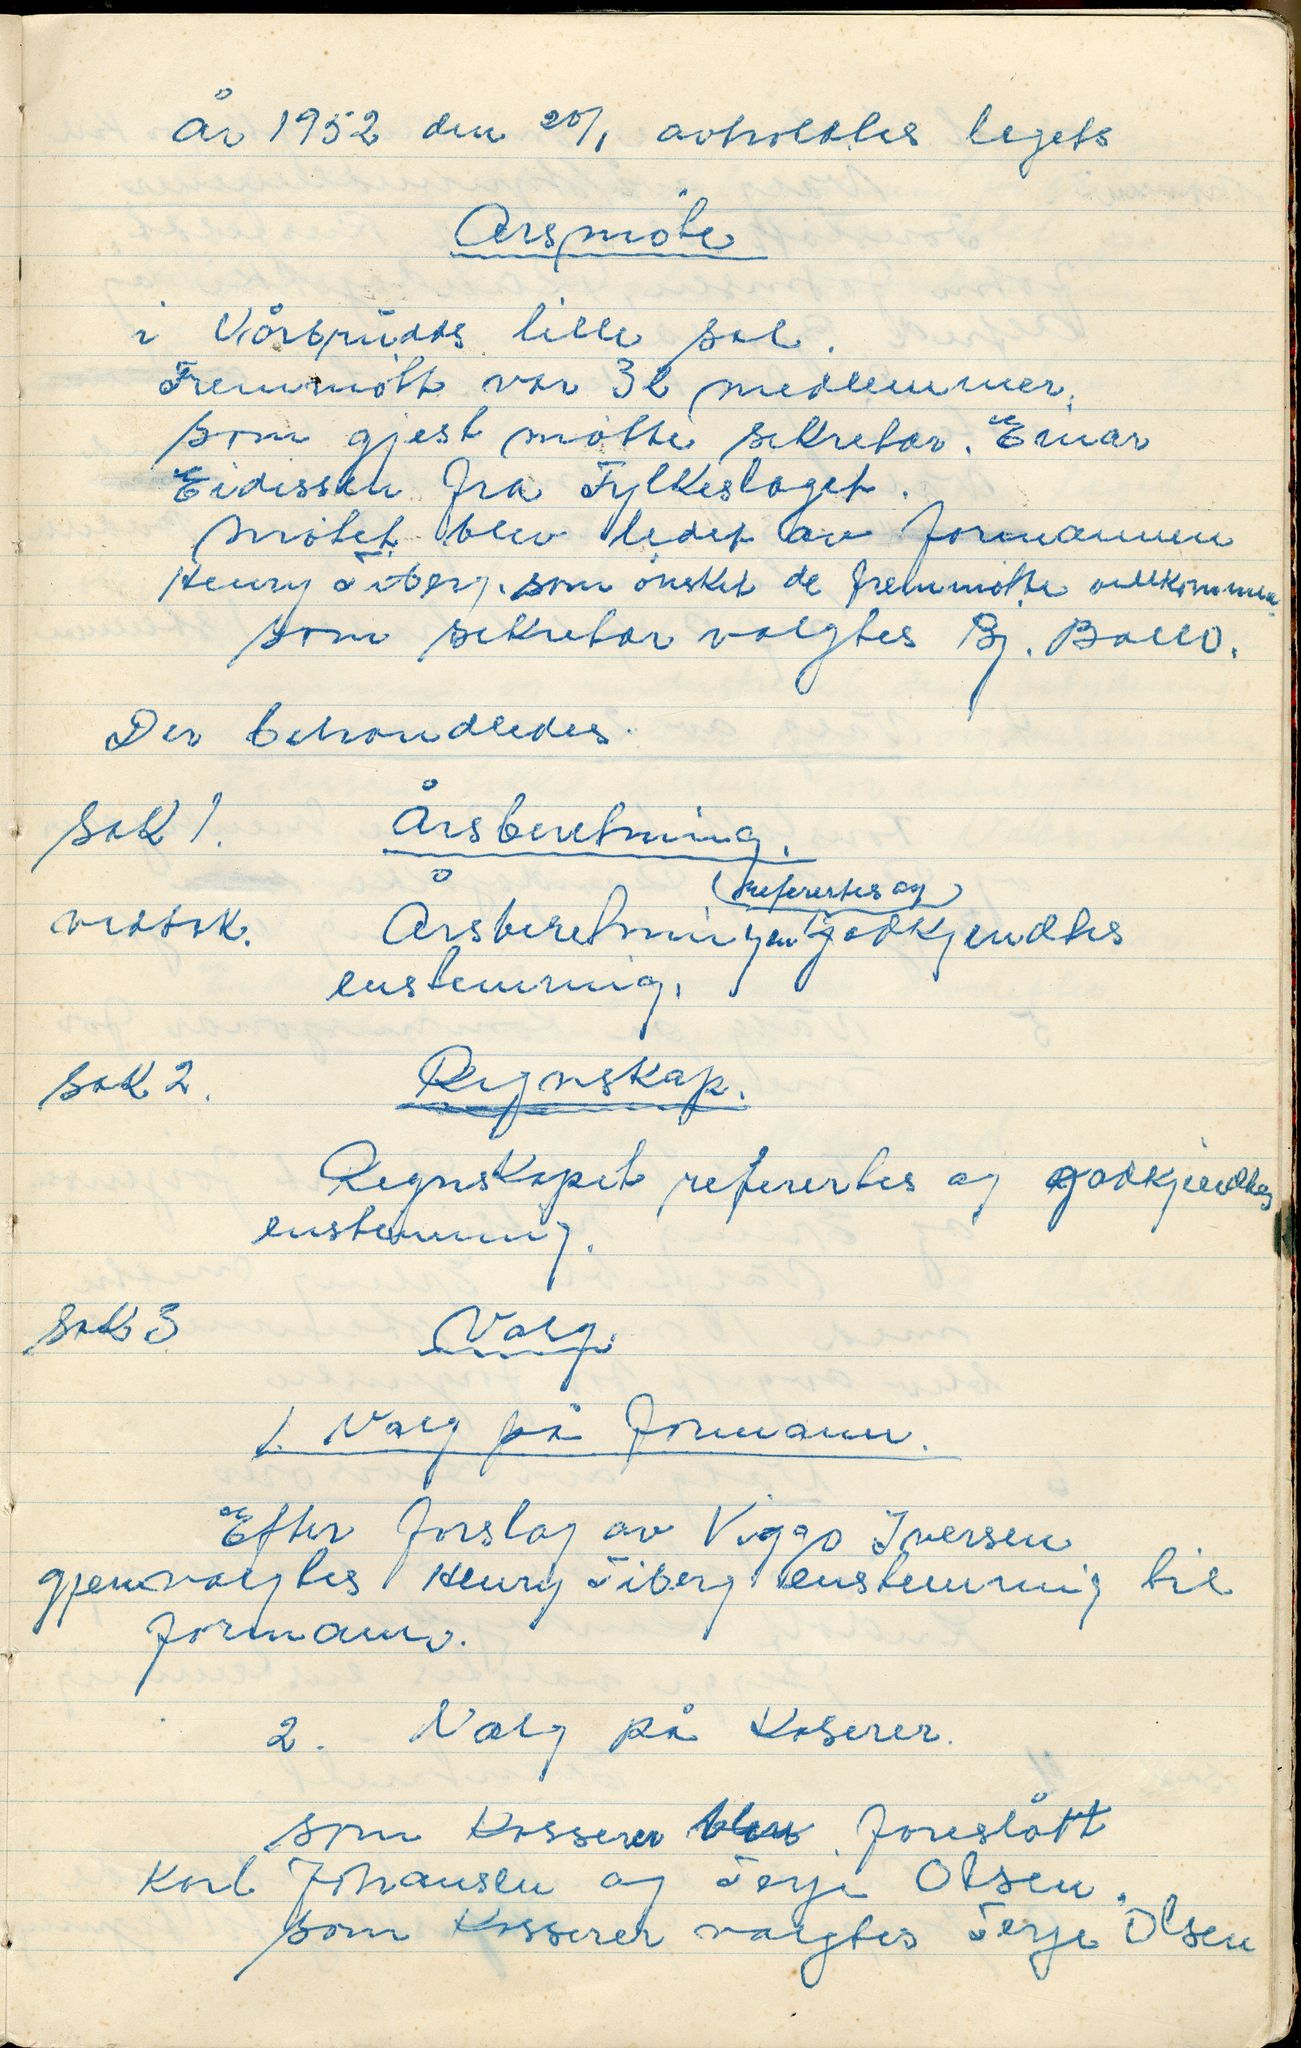 År 1952 den 20/1 avholdtes lagets
Årsmöte
i Vårbrudds lille sal.
Fremmött var 32 medlemmer.
som gjest mötte sekretær. Einar
Eidissen fra Fylkeslaget.
Mötet blev ledet av formannen
Henry Tiberg. som önsket de fremmötte velkommen.
som sekretær valgtes Bj. Ballo.
Der behandledes.
Sak 1. Årsberetning.
(referertes og)
vedtak. Årsberetningen godkjendtes
enstemmig.
Sak 2. Regnskap.
Regnskapet referertes og godkjendtes
enstemmig.
Sak 3 Valg.
1. Valg på formann.
Efter forslag av Viggo Iversen
gjenvalgtes Henry Tiberg enstemmig til
formann.
2. Valg på Kaserer.
som Kasserer blev foreslått
Karl Johansen og Terje Olsen.
som Kasserer valgtes Terje Olsen